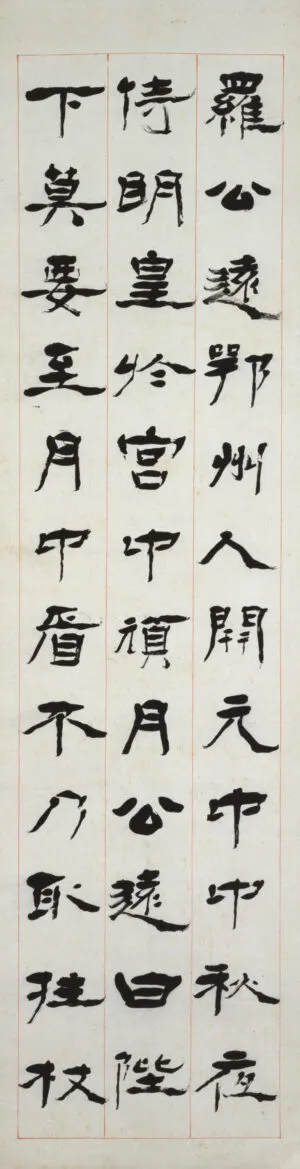 羅公遠鄂州人開元中中秋夜
侍明皇於宮中頑月公遠曰陛
下莫要至月中看不乃取拄杖